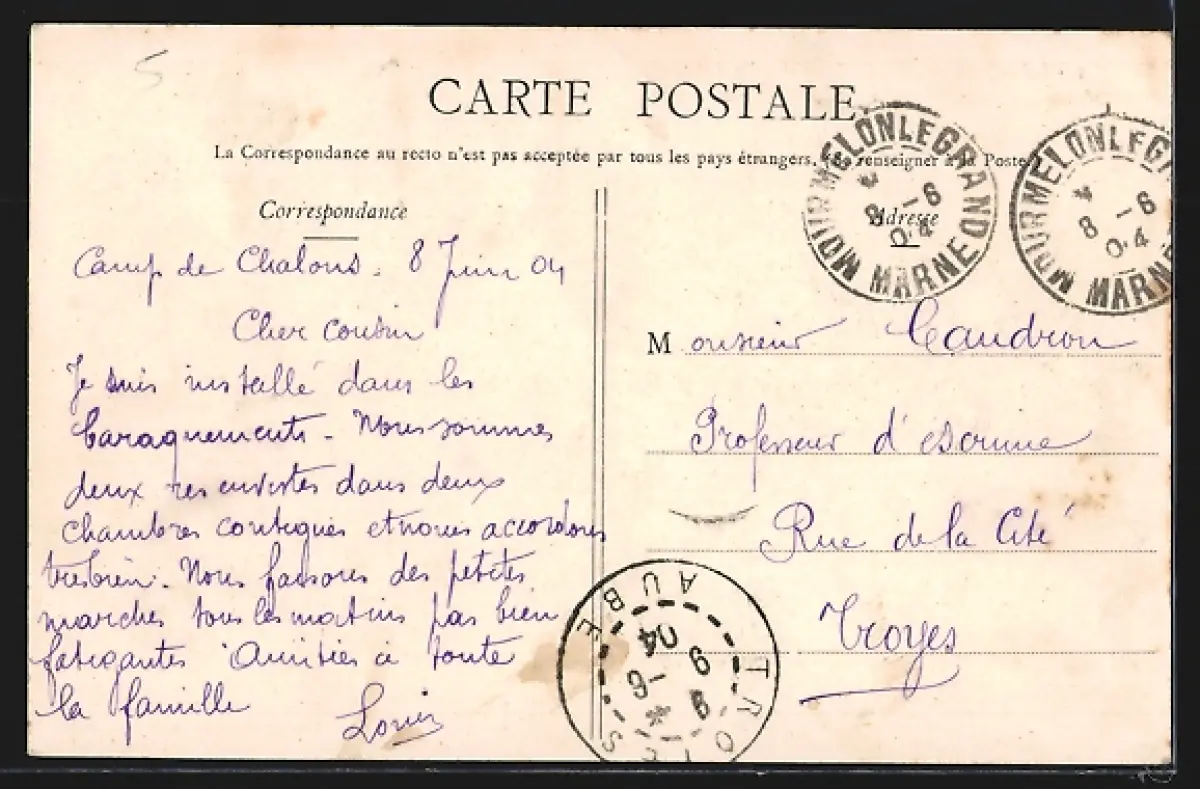 5
CARTE POSTALE
La Correspondance au recto n'est pas acceptée par tous les pays étrangers. (Se renseigner à la Poste.)
Correspondance
Camp de Chalons. 8 Juin 04
Cher cousin
Je suis installé dans les
baraquements - Nous sommes
deux reservistes dans deux
chambres contigues et nous accordons
tres bien. Nous faisons des petites
marches tous les matins pas bien
fatigantes Amitiés à toute
la famille
Louis
Adresse
Monsieur Caudron
Professeur d'escrime
Rue de la Cité
Troyes
MOURMELON LE GRAND
8 -6
04
MARNE
MOURMELON LE G
8 -6
04
MARNE
TROYES
9 -6
04
AUBE